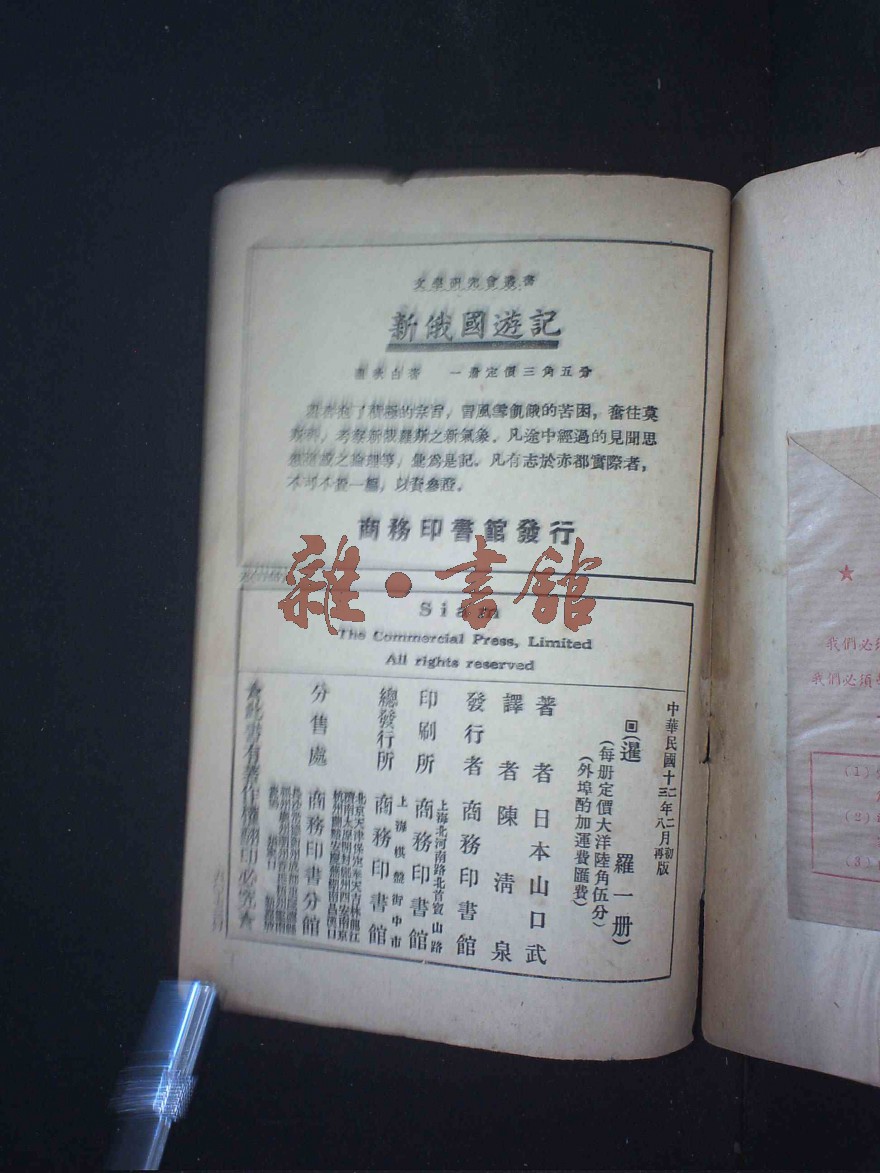 文學研究會叢書
新俄國遊記
一冊定價三角五分
冒風雪飢餓的苦困,奮往莫
考察新俄羅斯之新氣象。凡途中經過的見聞思
之倫理等,彙爲是記。凡有志於赤都實際者,
不可不置一編,以資參證。
商務印書館發行
雜·書館
Siam
The Commercial Press, Limited
All rights reserved
中華民國十二年二月初版
十三年八月再版
回(暹羅一册)
(每册定價大洋陸角伍分)
(外埠酌加運費匯費)
著者 日本山口武
譯者 陳清泉
發行者 商務印書館
印刷所 上海北河南路北首寶山路 商務印書館
總發行所 上海棋盤街中市 商務印書館
分售處 商務印書分館
北京天津保定奉天吉林龍江
濟南太原開封鄭州西安南京
★此書有著作權翻印必究★
★
我們必須
我們必須
(1)
(2)
(3)